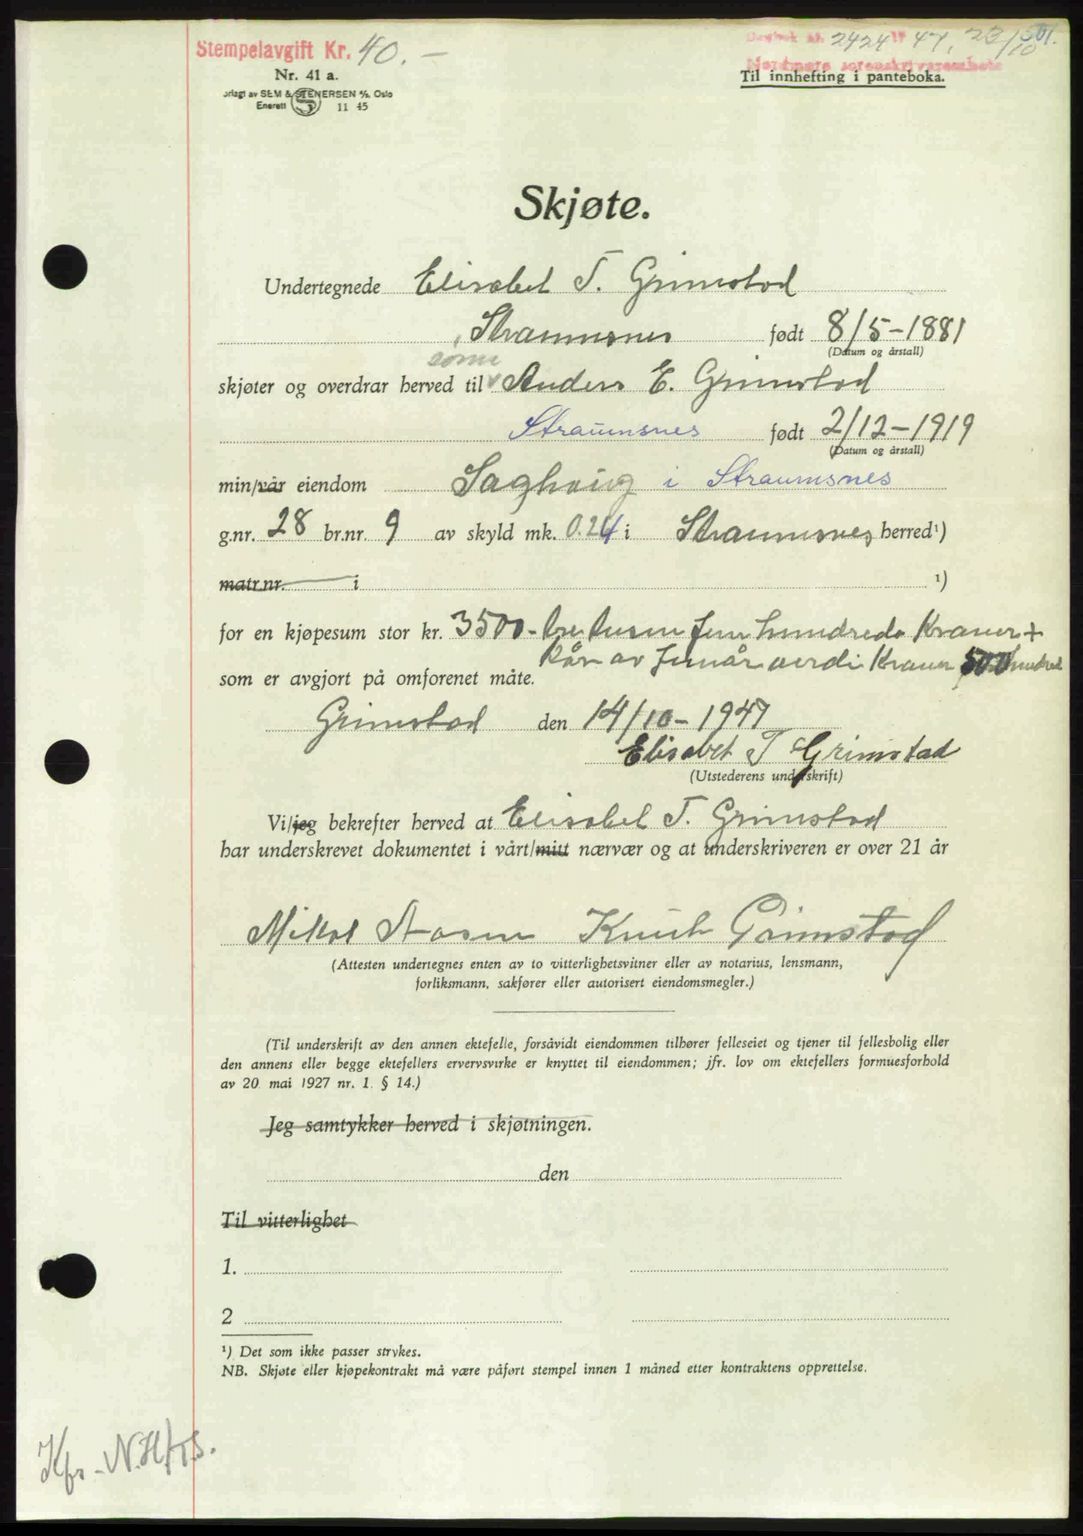 Stempelavgift Kr. 40.-
Dagbok nr. 2424 19 47, 23/10 501.
Nordmøre sorenskriverembete
Nr. 41 a.
Til innhefting i panteboka.
orlagt av SEM & STENERSEN A/S, Oslo
Enerett S 11 45
Skjøte.
Undertegnede Elisabet T. Grimstad
, Straumsnes født 8/5-1881
(Datum og årstall)
sønn
skjøter og overdrar herved til Anders E. Grimstad
Straumsnes født 2/12-1919
(Datum og årstall)
min/vår eiendom Saghaug i Straumsnes
g.nr. 28 br.nr. 9 av skyld mk. 0.24 i Straumsnes herred¹)
matr.nr. i ¹)
for en kjøpesum stor kr. 3500- tre tusen fem hundrede Kroner +
Kår av femår verdi Kroner 500 hundred
som er avgjort på omforenet måte.
Grimstad den 14/10-1947
Elisabet T Grimstad
(Utstederens underskrift)
Vi/jeg bekrefter herved at Elisabet T. Grimstad
har underskrevet dokumentet i vårt/mitt nærvær og at underskriveren er over 21 år
Mikal Aasen Knut Grimstad
(Attesten undertegnes enten av to vitterlighetsvitner eller av notarius, lensmann,
forliksmann, sakfører eller autorisert eiendomsmegler.)
(Til underskrift av den annen ektefelle, forsåvidt eiendommen tilhører felleseiet og tjener til fellesbolig eller
den annens eller begge ektefellers ervervsvirke er knyttet til eiendommen; jfr. lov om ektefellers formuesforhold
av 20 mai 1927 nr. 1. § 14.)
Jeg samtykker herved i skjøtningen.
den
Til vitterlighet
1.
2
¹) Det som ikke passer strykes.
NB. Skjøte eller kjøpekontrakt må være påført stempel innen 1 måned etter kontraktens opprettelse.
Kfr. N.H/TS.